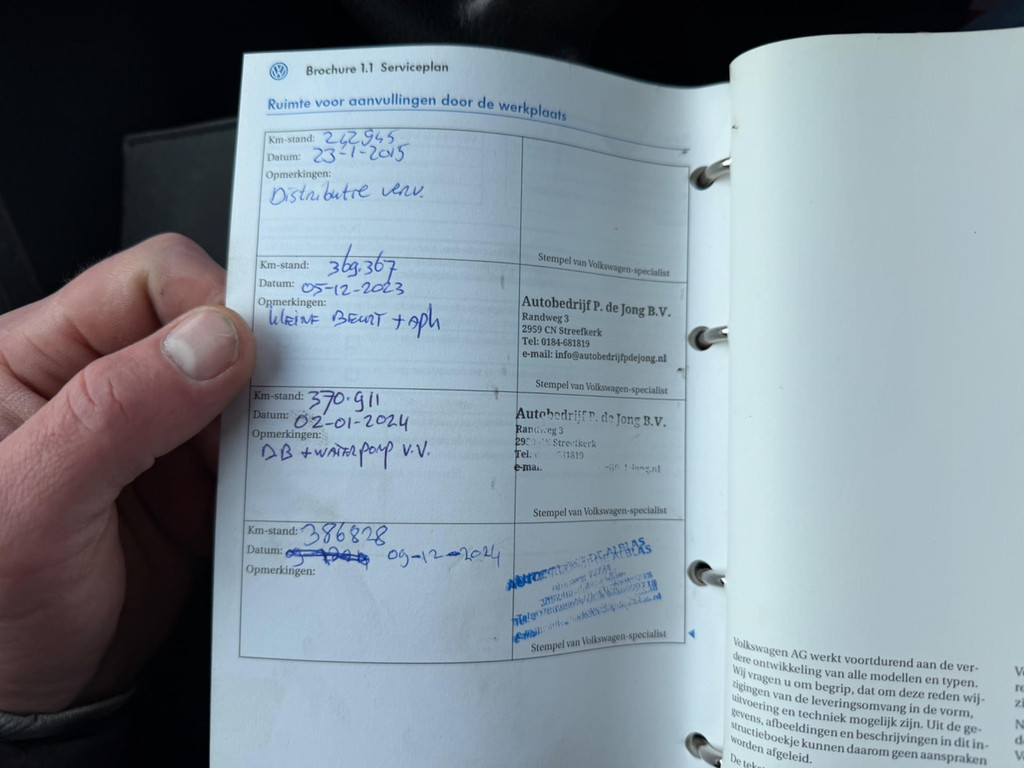 Brochure 1.1 Serviceplan
Ruimte voor aanvullingen door de werkplaats
Km-stand: 242945
Datum: 23-1-2015
Opmerkingen:
Distributie verv.
Stempel van Volkswagen-specialist
Km-stand: 369.367
Datum: 05-12-2023
Opmerkingen:
KLEINE BEURT + APK
Autobedrijf P. de Jong B.V.
Randweg 3
2959 CN Streefkerk
Tel: 0184-681819
e-mail: info@autobedrijfpdejong.nl
Stempel van Volkswagen-specialist
Km-stand: 370.911
Datum: 02-01-2024
Opmerkingen:
DB + WATERPOMP V.V.
Autobedrijf P. de Jong B.V.
Stempel van Volkswagen-specialist
Km-stand: 386828
Datum: 09-12-2024
Opmerkingen:
Stempel van Volkswagen-specialist
Volkswagen AG werkt voortdurend aan de ver-
dere ontwikkeling van alle modellen en typen.
Wij vragen u om begrip, dat om deze reden wij-
zigingen van de leveringsomvang in de vorm,
uitvoering en techniek mogelijk zijn. Uit de ge-
gevens, afbeeldingen en beschrijvingen in dit in-
structieboekje kunnen daarom geen aanspraken
worden afgeleid.